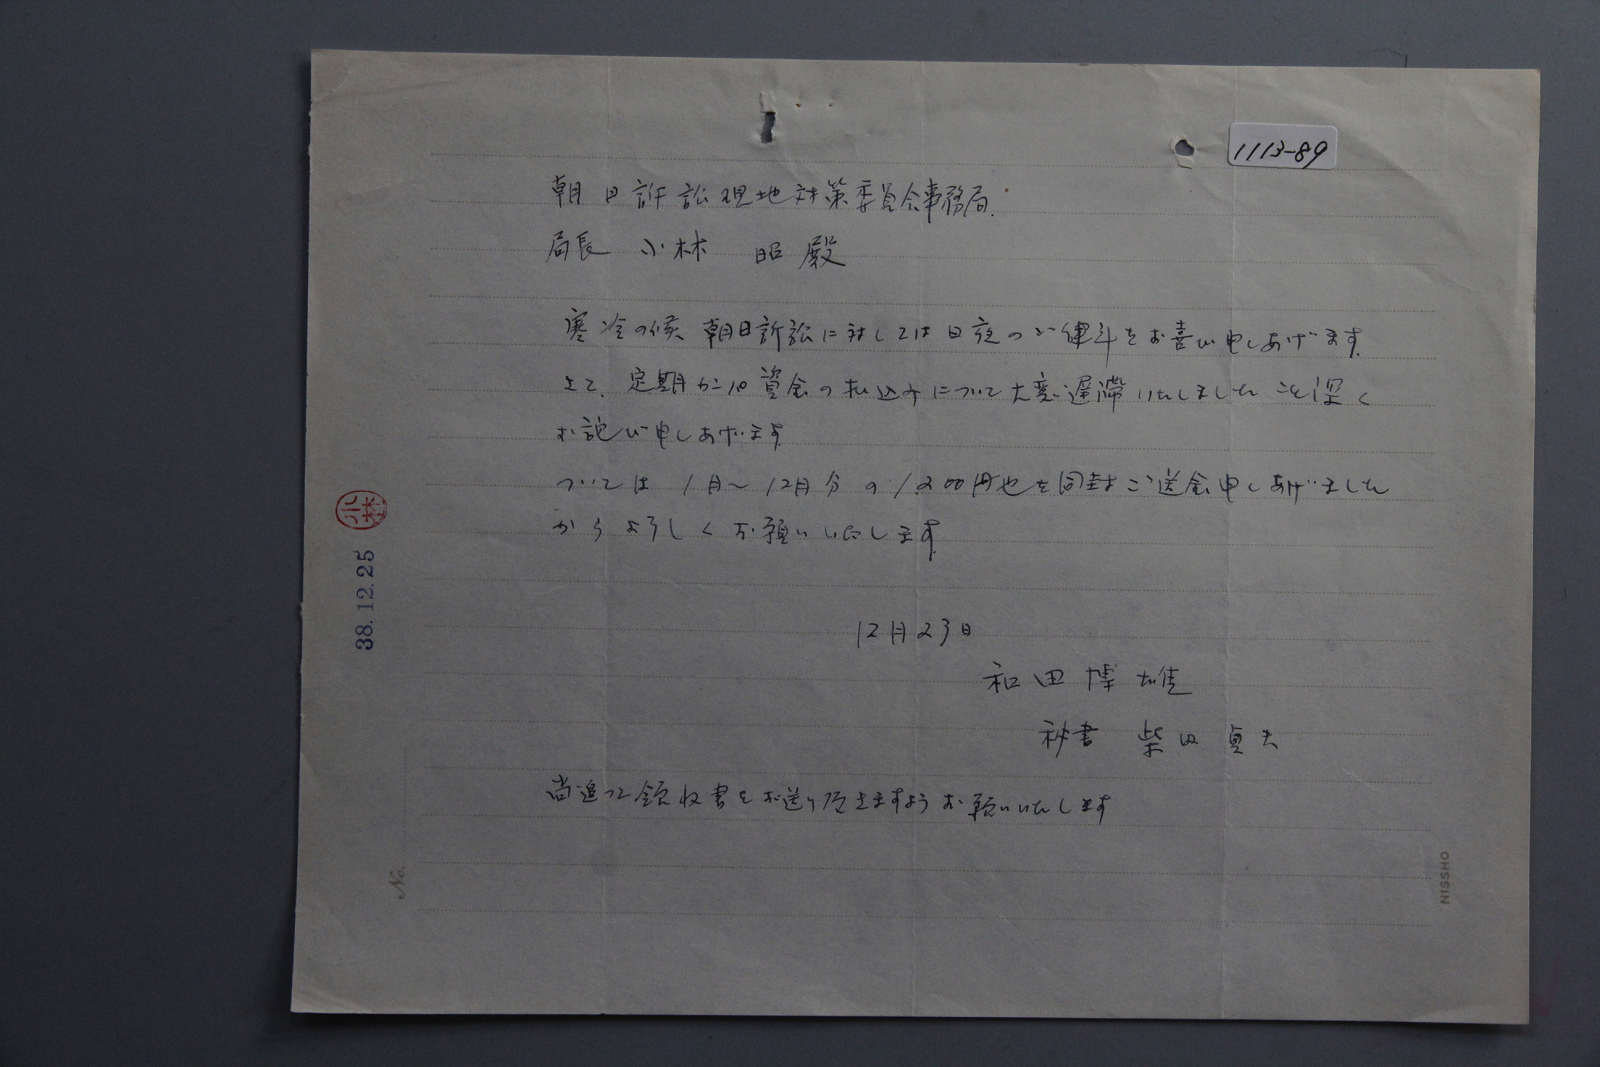 1113-89
朝日訴訟現地対策委員会事務局.
局長 小林 昭殿
寒冷の候 朝日訴訟に対しては日夜のご健斗をお喜び申しあげます.
さて、定期カンパ資金の払込みについて大変遅滞いたしましたこと深く
お詫び申しあげます
ついては 1月〜12月分の1,200円也を同封ご送金申しあげました
からよろしくお願いいたします.
12月23日
和田博雄
秘書 柴田貞夫
尚追って領収書をお送り頂きますようお願いいたします
小林
38.12.25
No.
NISSHO